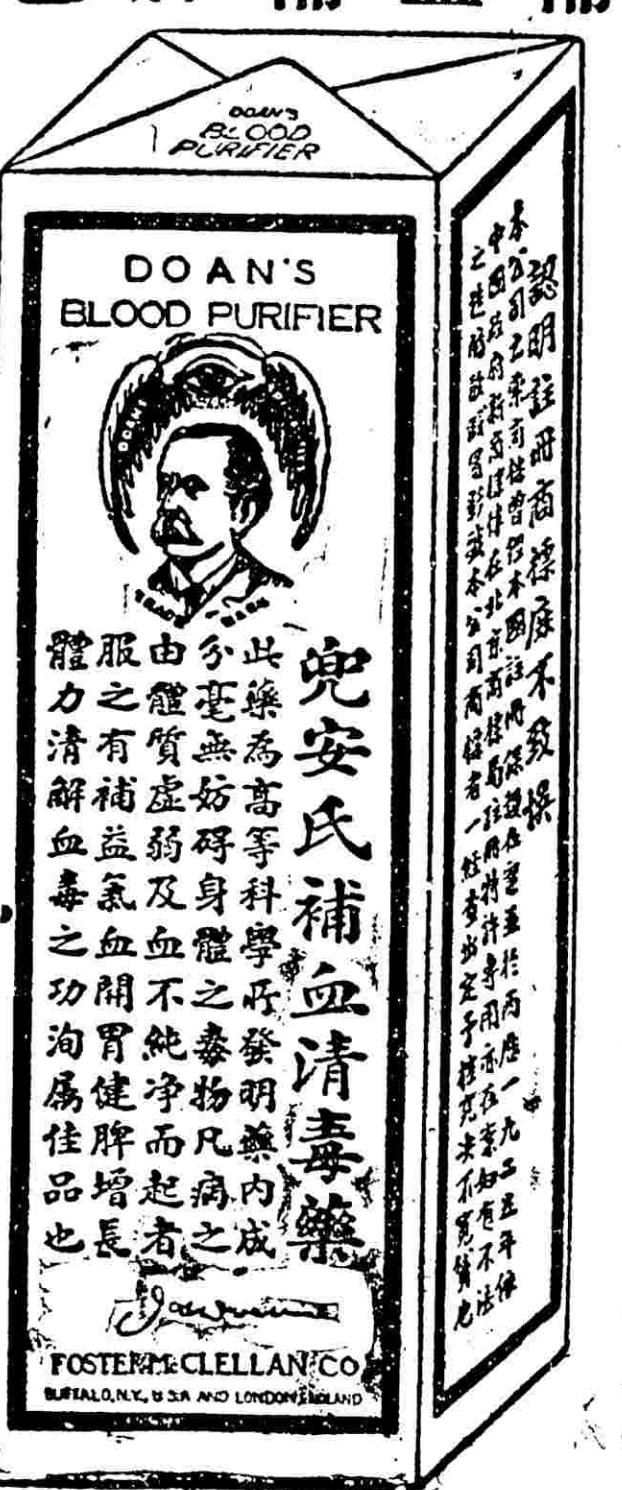 DOAN'S
BLOOD
PURIFIER
DOAN'S
BLOOD PURIFIER
DOAN'S
TRADE MARK
兜安氏補血清毒藥
此藥為高等科學所發明藥內成
分毫無妨碍身體之毒物凡病之
由體質虛弱及血不純净而起者
服之有補益氣血開胃健脾增長
體力清解血毒之功洵属佳品也
FOSTER McCLELLAN CO
BUFFALO, N.Y., U.S.A AND LONDON, ENGLAND
認明註冊商標庶不致悞
本公司 註冊 一九二五年
中國政府 在北京商標局註冊特許專用亦在案如有不法
之徒 本公司商標者一經查出定予 究决不寬貸也